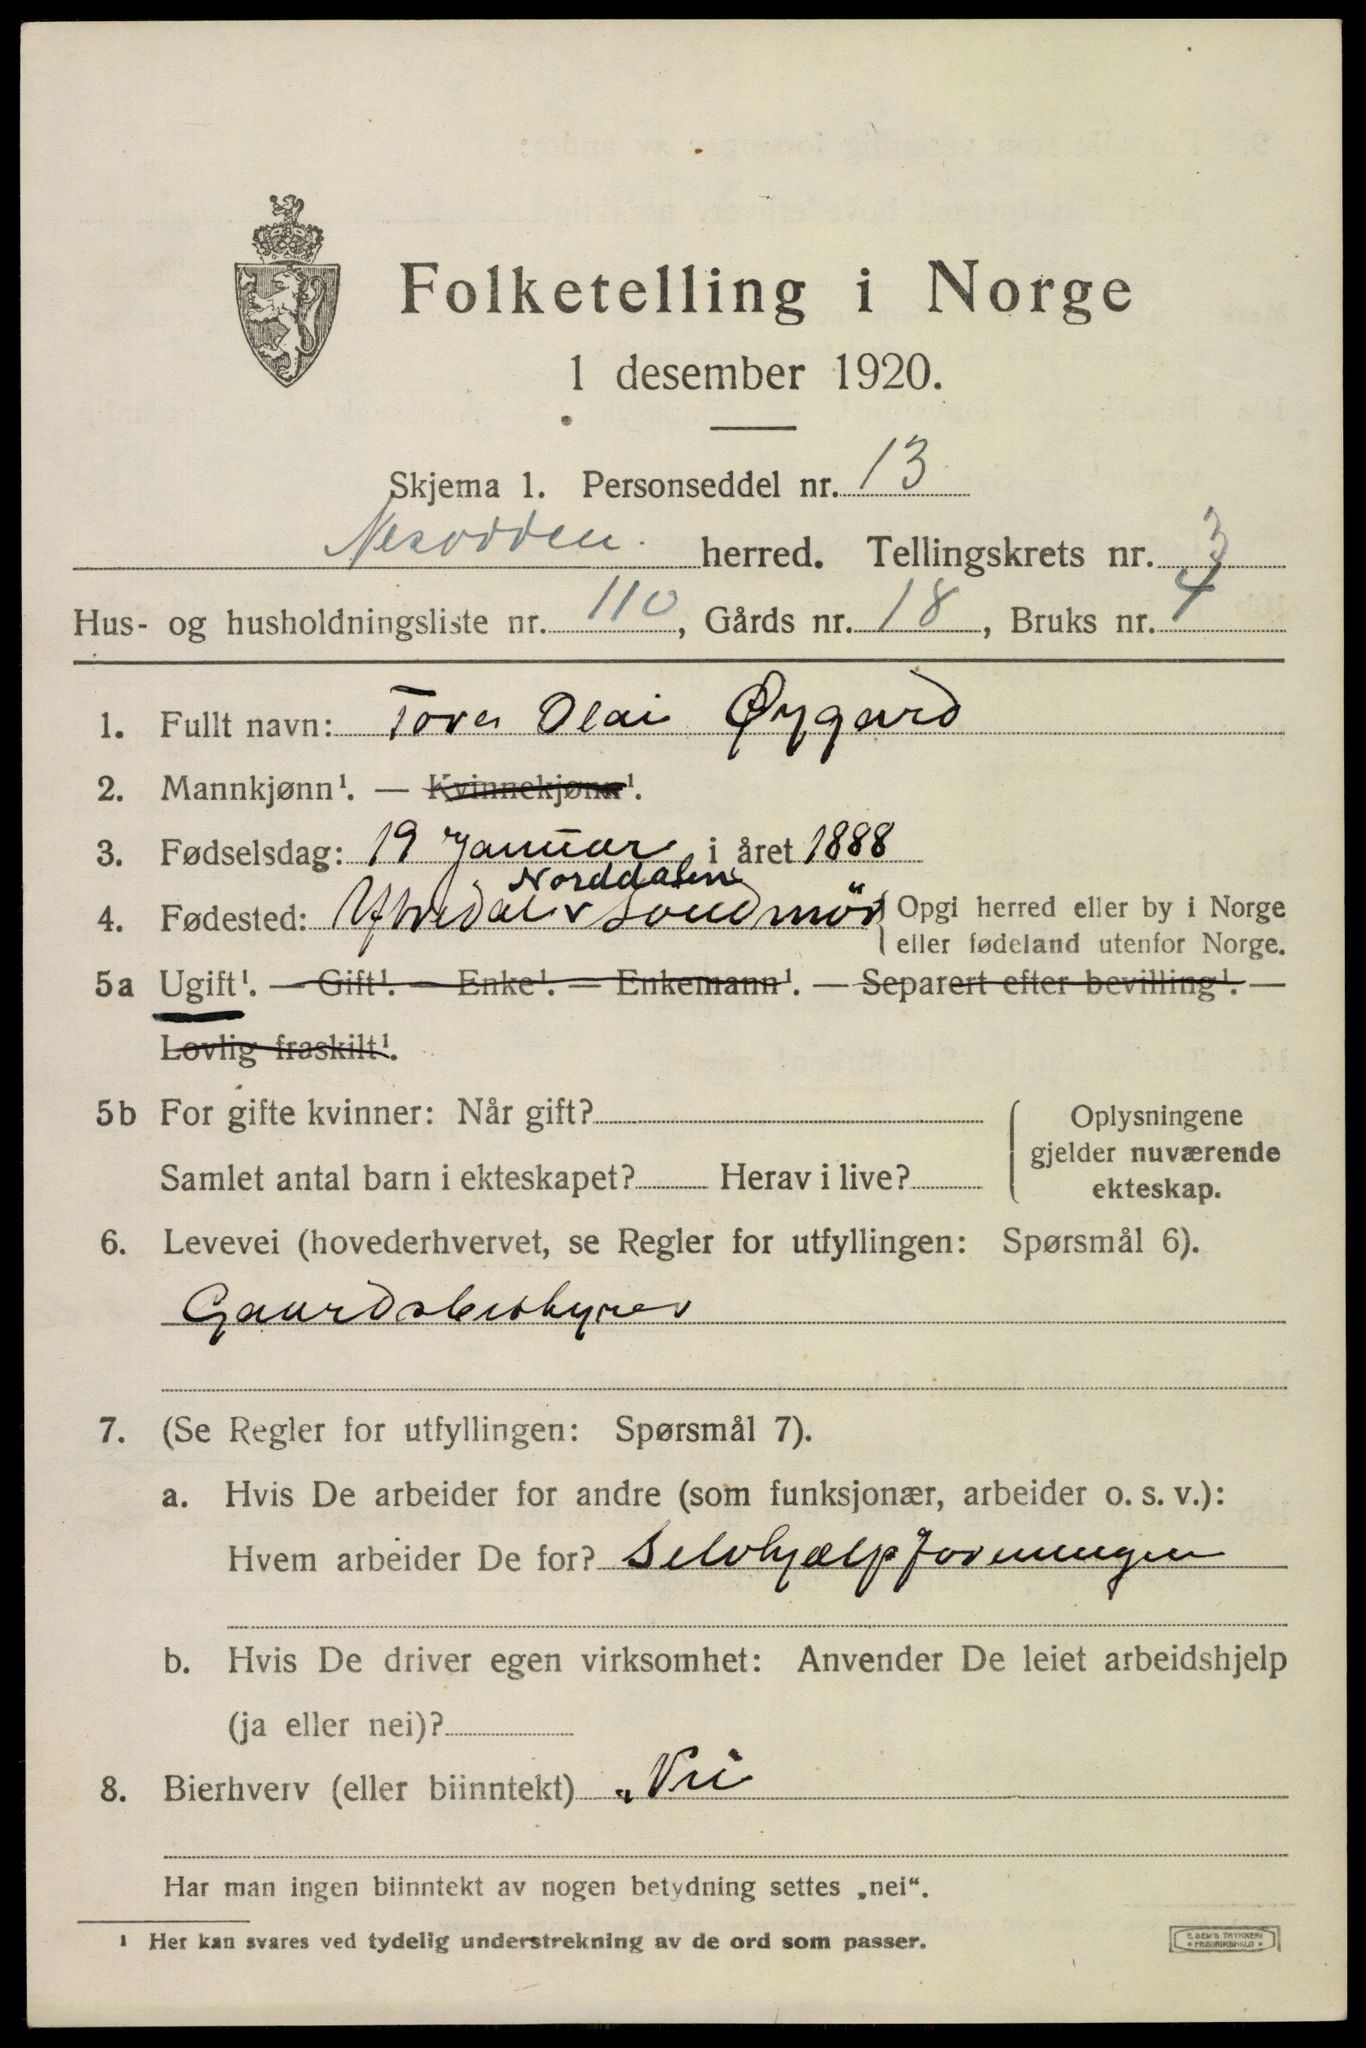 Folketelling i Norge
1 desember 1920.
Skjema 1. Personseddel nr. 13
Nesodden herred. Tellingskrets nr. 3
Hus- og husholdningsliste nr. 110, Gårds nr. 18, Bruks nr. 4
1. Fullt navn: Olai Øygard
2. Mannkjønn¹. — Kvinnekjønn¹.
3. Fødselsdag: 19 Januar i året 1888
Norddalen
4. Fødested: Søndmør Opgi herred eller by i Norge
eller fødeland utenfor Norge.
5a Ugift¹. — Gift¹. — Enke¹. — Enkemann¹. — Separert efter bevilling¹. —
Lovlig fraskilt¹.
5b For gifte kvinner: Når gift? Oplysningene
gjelder nuværende
Samlet antal barn i ekteskapet? Herav i live?
ekteskap.
6. Levevei (hovederhvervet, se Regler for utfyllingen: Spørsmål 6).
Gaardsbestyrer
7. (Se Regler for utfyllingen: Spørsmål 7).
a. Hvis De arbeider for andre (som funksjonær, arbeider o. s. v.):
Hvem arbeider De for? Selvhjælpforeningen
b. Hvis De driver egen virksomhet: Anvender De leiet arbeidshjelp
(ja eller nei)?
8. Bierhverv (eller biinntekt) „Nei
Har man ingen biinntekt av nogen betydning settes „nei“.
¹ Her kan svares ved tydelig understrekning av de ord som passer.
E. SEM'S TRYKKERI
FREDRIKSHALD